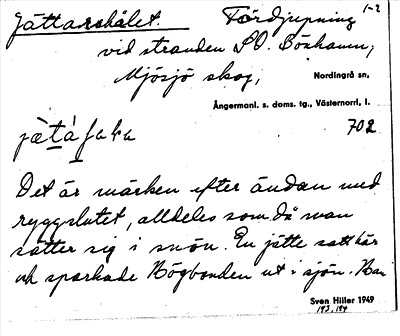 Jättarshålet. Fördjupning 1-2
vid stranden SO. Böshamn,
Mjösjö skog, Nordingrå sn,
Ångermanl. s. doms. tg., Västernorrl. l.
702
Det är märken efter ändan med
ryggslutet, alldeles som då man
sätter sig i snön. En jätte satt här
och sparkade Högbonden ut i sjön.
Sven Hiller 1949
193, 194